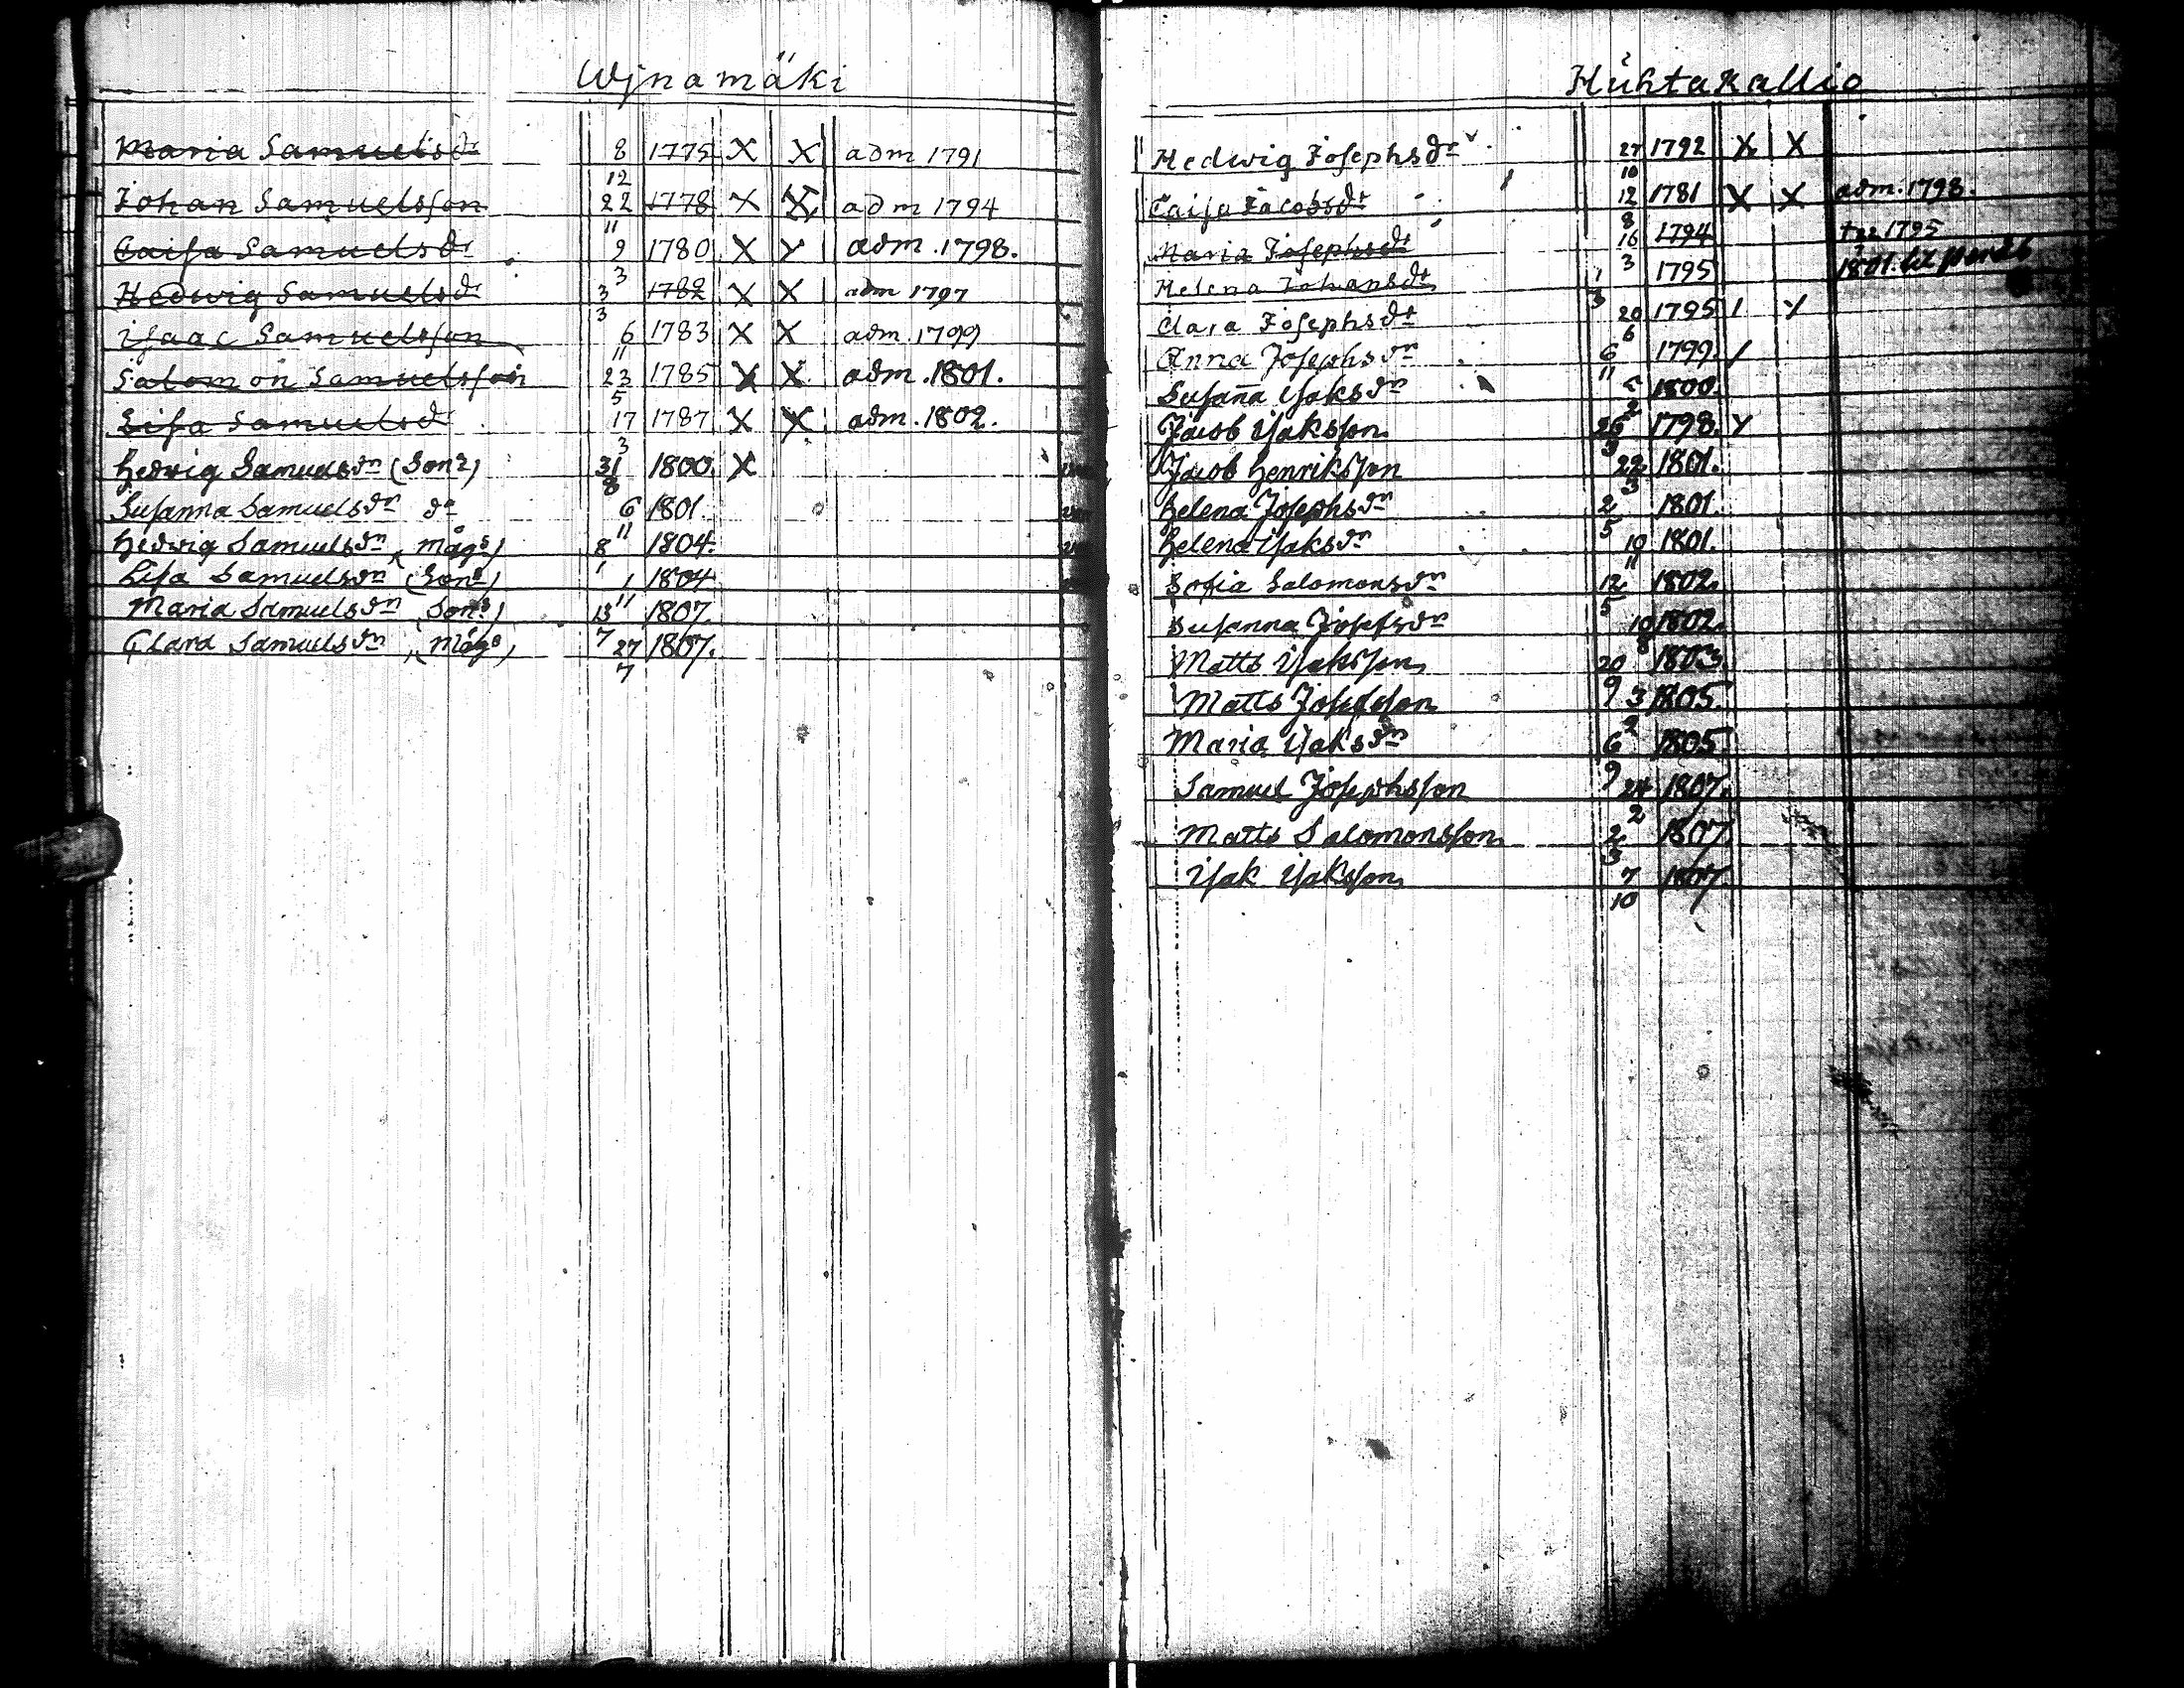 Wjnamäki
Maria Samuelsdr 8/12 1775 X X adm 1791
Johan Samuelsson 22/11 1778 X X adm 1794
Caisa Samuelsdr 9/3 1780 X X adm. 1798.
Hedwig Samuelsdr 3/3 1782 X X adm 1797
Isaac Samuelsson 6/11 1783 X X adm. 1799
Salomon Samuelsson 23/5 1785 X X adm. 1801.
Lisa Samuelsdr 17/3 1787 X X adm. 1802.
Hedvig Samuelsdr (Sons) 31/8 1800. X
Susanna Samuelsdr do 6/11 1801.
Hedvig Samuelsdr (mågs) 8/1 1804.
Lisa Samuelsdr (Sons) 1/11 1804
Maria Samuelsdr (Sons) 13/7 1807.
Clara Samuelsdr (mågs) 27/7 1807.
Huhtakallio
Hedwig Josephsdr 27/10 1792 X X
Caisa Jacobsdr 12/8 1781 X X adm. 1798.
Maria Josephsdr 16/3 1794 1795
Helena Johansdr 1/3 1795 1801. til
Clara Josephsdr 20/6 1795
Anna Josephsdr 6/11 1799
Susanna Isaksdr 1800.
Jacob Isaksson 1798.
Jacob Henriksson 22/3 1801.
Helena Josephsdr 2/5 1801.
Helena Isaksdr 10/11 1801.
Sofia Salomonsdr 12/5 1802.
Susanna Josefsdr 10/8 1802.
Matts Isaksson 20/9 1803.
Matts Josefsson 3/2 1805.
Maria Isaksdr 6/9 1805.
Samuel Josephsson 24/2 1807.
Matts Salomonsson 2/3 1807.
Isak Isaksson 7/10 1807.